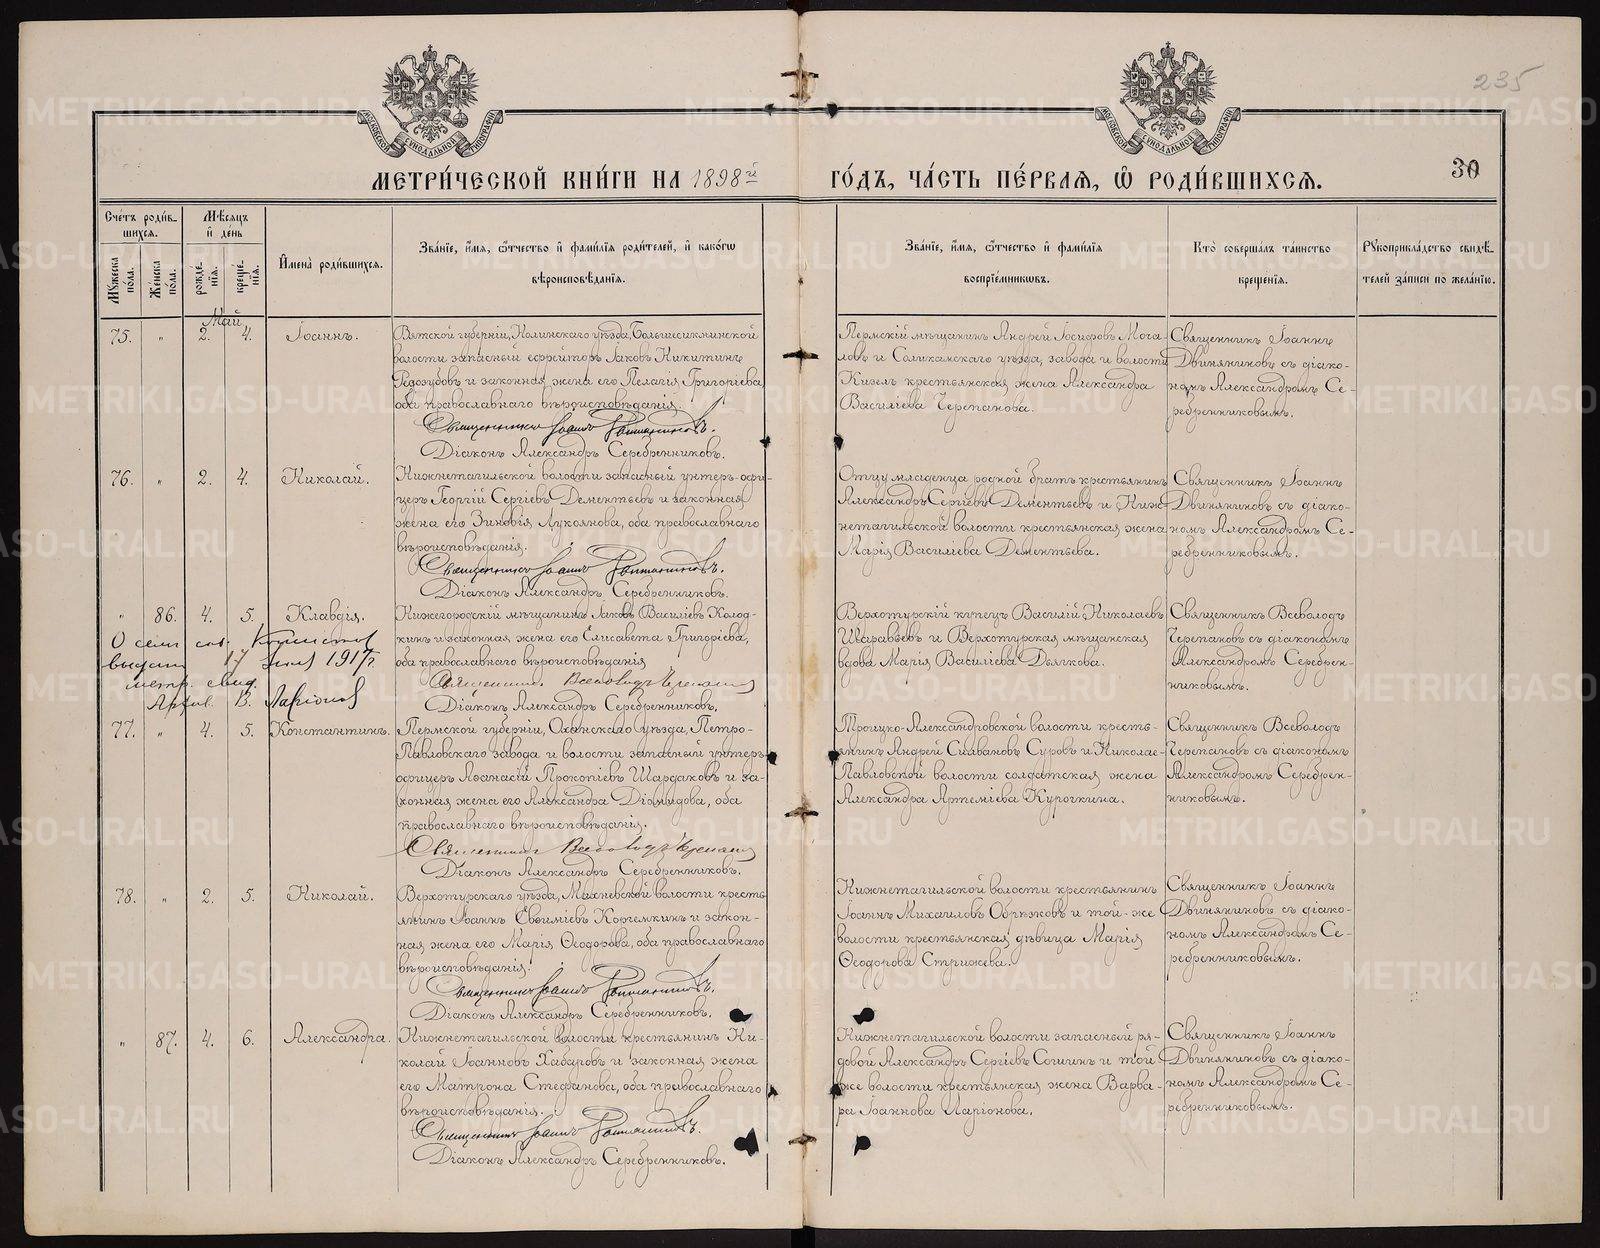 235
МЕТРИ́ЧЕСКОЙ КНИ́ГИ НА 1898й ГО́ДЪ, ЧА́СТЬ ПЕ́РВАЯ, Ѽ РОДИ́ВШИХСЯ.
30
Сче́тъ роди́вшихся.
Му́жеска по́ла.
Же́нска по́ла.
Мѣ́сяцъ и҆ де́нь
рожде́нїя.
креще́нїя.
И҆мена̀ роди́вшихся.
Зва́нїе, и҆́мя, ѻ҆́тчество и҆ фами́лїя роди́телей, и҆ како́гѡ
вѣроисповѣ́данїя.
Зва́нїе, и҆́мя, ѻ҆́тчество и҆ фами́лїя
воспрїе́мниковъ.
Кто̀ соверша́лъ та́инство
креще́нїя.
Рꙋкоприкла́дство свидѣ́телей за́писи по жела́нїю.
Май
75. " 2. 4. Іоаннъ.
Вятской губерніи, Нолинскаго уѣзда,
волости запасный ефрейторъ Іаковъ Никитинъ
Редозубовъ и законная жена его Пелагія Григоріева,
оба православнаго вѣроисповѣданія.
Священникъ Іоаннъ Двиняниновъ.
Діаконъ Александръ Серебренниковъ.
Пермскій мѣщанинъ Андрей Іосифовъ Мога-
ловъ и Соликамскаго уѣзда, завода и волости
Кизелъ крестьянская жена Александра
Василіева Черепанова.
Священникъ Іоаннъ
Двиняниновъ съ діако-
номъ Александромъ Се-
ребренниковымъ.
76. " 2. 4. Николай.
Нижнетагильской волости запасный унтеръ-офи-
церъ Георгій Сергіевъ Дементьевъ и законная
жена его Зиновія Лукоянова, оба православнаго
вѣроисповѣданія.
Священникъ Іоаннъ Двиняниновъ.
Діаконъ Александръ Серебренниковъ.
Отцу младенца родной братъ крестьянинъ
Александръ Сергіевъ Дементьевъ и Ниж-
нетагильской волости крестьянская жена
Марія Василіева Дементьева.
Священникъ Іоаннъ
Двиняниновъ съ діако-
номъ Александромъ Се-
ребренниковымъ.
" 86. 4. 5. Клавдія.
О семъ
выдано 17 1917 г.
метр. свид.
В. Ларіонов
Нижегородскій мѣщанинъ Іаковъ Василіевъ Колод-
кинъ и законная жена его Елисавета Григоріева,
оба православнаго вѣроисповѣданія
Священникъ Всеволодъ Черепановъ
Діаконъ Александръ Серебренниковъ.
Верхотурскій купецъ Василій Николаевъ
Шаравьевъ и Верхотурская мѣщанская
вдова Марія Василіева Дьячкова.
Священникъ Всеволодъ
Черепановъ съ діакономъ
Александромъ Серебрен-
никовымъ.
77. " 4. 5. Константинъ.
Пермской губерніи, Оханскаго уѣзда, Петро-
Павловскаго завода и волости запасный унтеръ-
офицеръ Аѳанасій Прокопіевъ Шардаковъ и за-
конная жена его Александра Діомидова, оба
православнаго вѣроисповѣданія.
Священникъ Всеволодъ Черепановъ
Діаконъ Александръ Серебренниковъ.
Троицко-Александровской волости кресть-
янинъ Андрей Суровъ и Николае-
Павловской волости солдатская жена
Александра Артеміева Курочкина.
Священникъ Всеволодъ
Черепановъ съ діакономъ
Александромъ Серебрен-
никовымъ.
78. " 2. 5. Николай.
Верхотурскаго уѣзда, Махневской волости кресть-
янинъ Іоаннъ Евѳиміевъ Корчемкинъ и закон-
ная жена его Марія Ѳеодорова, оба православнаго
вѣроисповѣданія.
Священникъ Іоаннъ Двиняниновъ.
Діаконъ Александръ Серебренниковъ.
Нижнетагильской волости крестьянинъ
Іоаннъ Михаиловъ Обрѣзковъ и той-же
волости крестьянская дѣвица Марія
Ѳеодорова Стрижева.
Священникъ Іоаннъ
Двиняниновъ съ діако-
номъ Александромъ Се-
ребренниковымъ.
" 87. 4. 6. Александра.
Нижнетагильской волости крестьянинъ Ни-
колай Іоанновъ Хабаровъ и законная жена
его Матрона Стефанова, оба православнаго
вѣроисповѣданія.
Священникъ Іоаннъ Двиняниновъ.
Діаконъ Александръ Серебренниковъ.
Нижнетагильской волости запасный ря-
довой Александръ Сергіевъ Сошинъ и той
же волости крестьянская жена Варва-
ра Іоаннова Ларіонова.
Священникъ Іоаннъ
Двиняниновъ съ діако-
номъ Александромъ Се-
ребренниковымъ.
METRIKI.GASO-URAL.RU